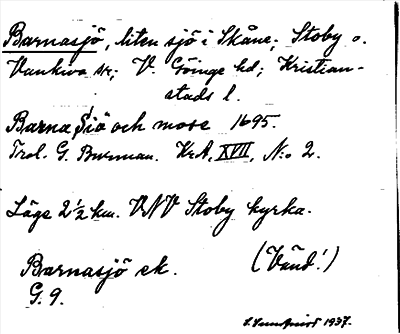 Barnasjö, liten sjö i Skåne; Stoby o.
Vankiva sn; V. Göinge hd; Kristian-
stads l.
Barna Siö och mose 1695.
Trol. G. Burman. Kr.A, XVII, N:o 2.
Läge 2 1/2 km. VNV Stoby kyrka.
Barnasjö ek. (Vänd!)
G. 9.
1937.